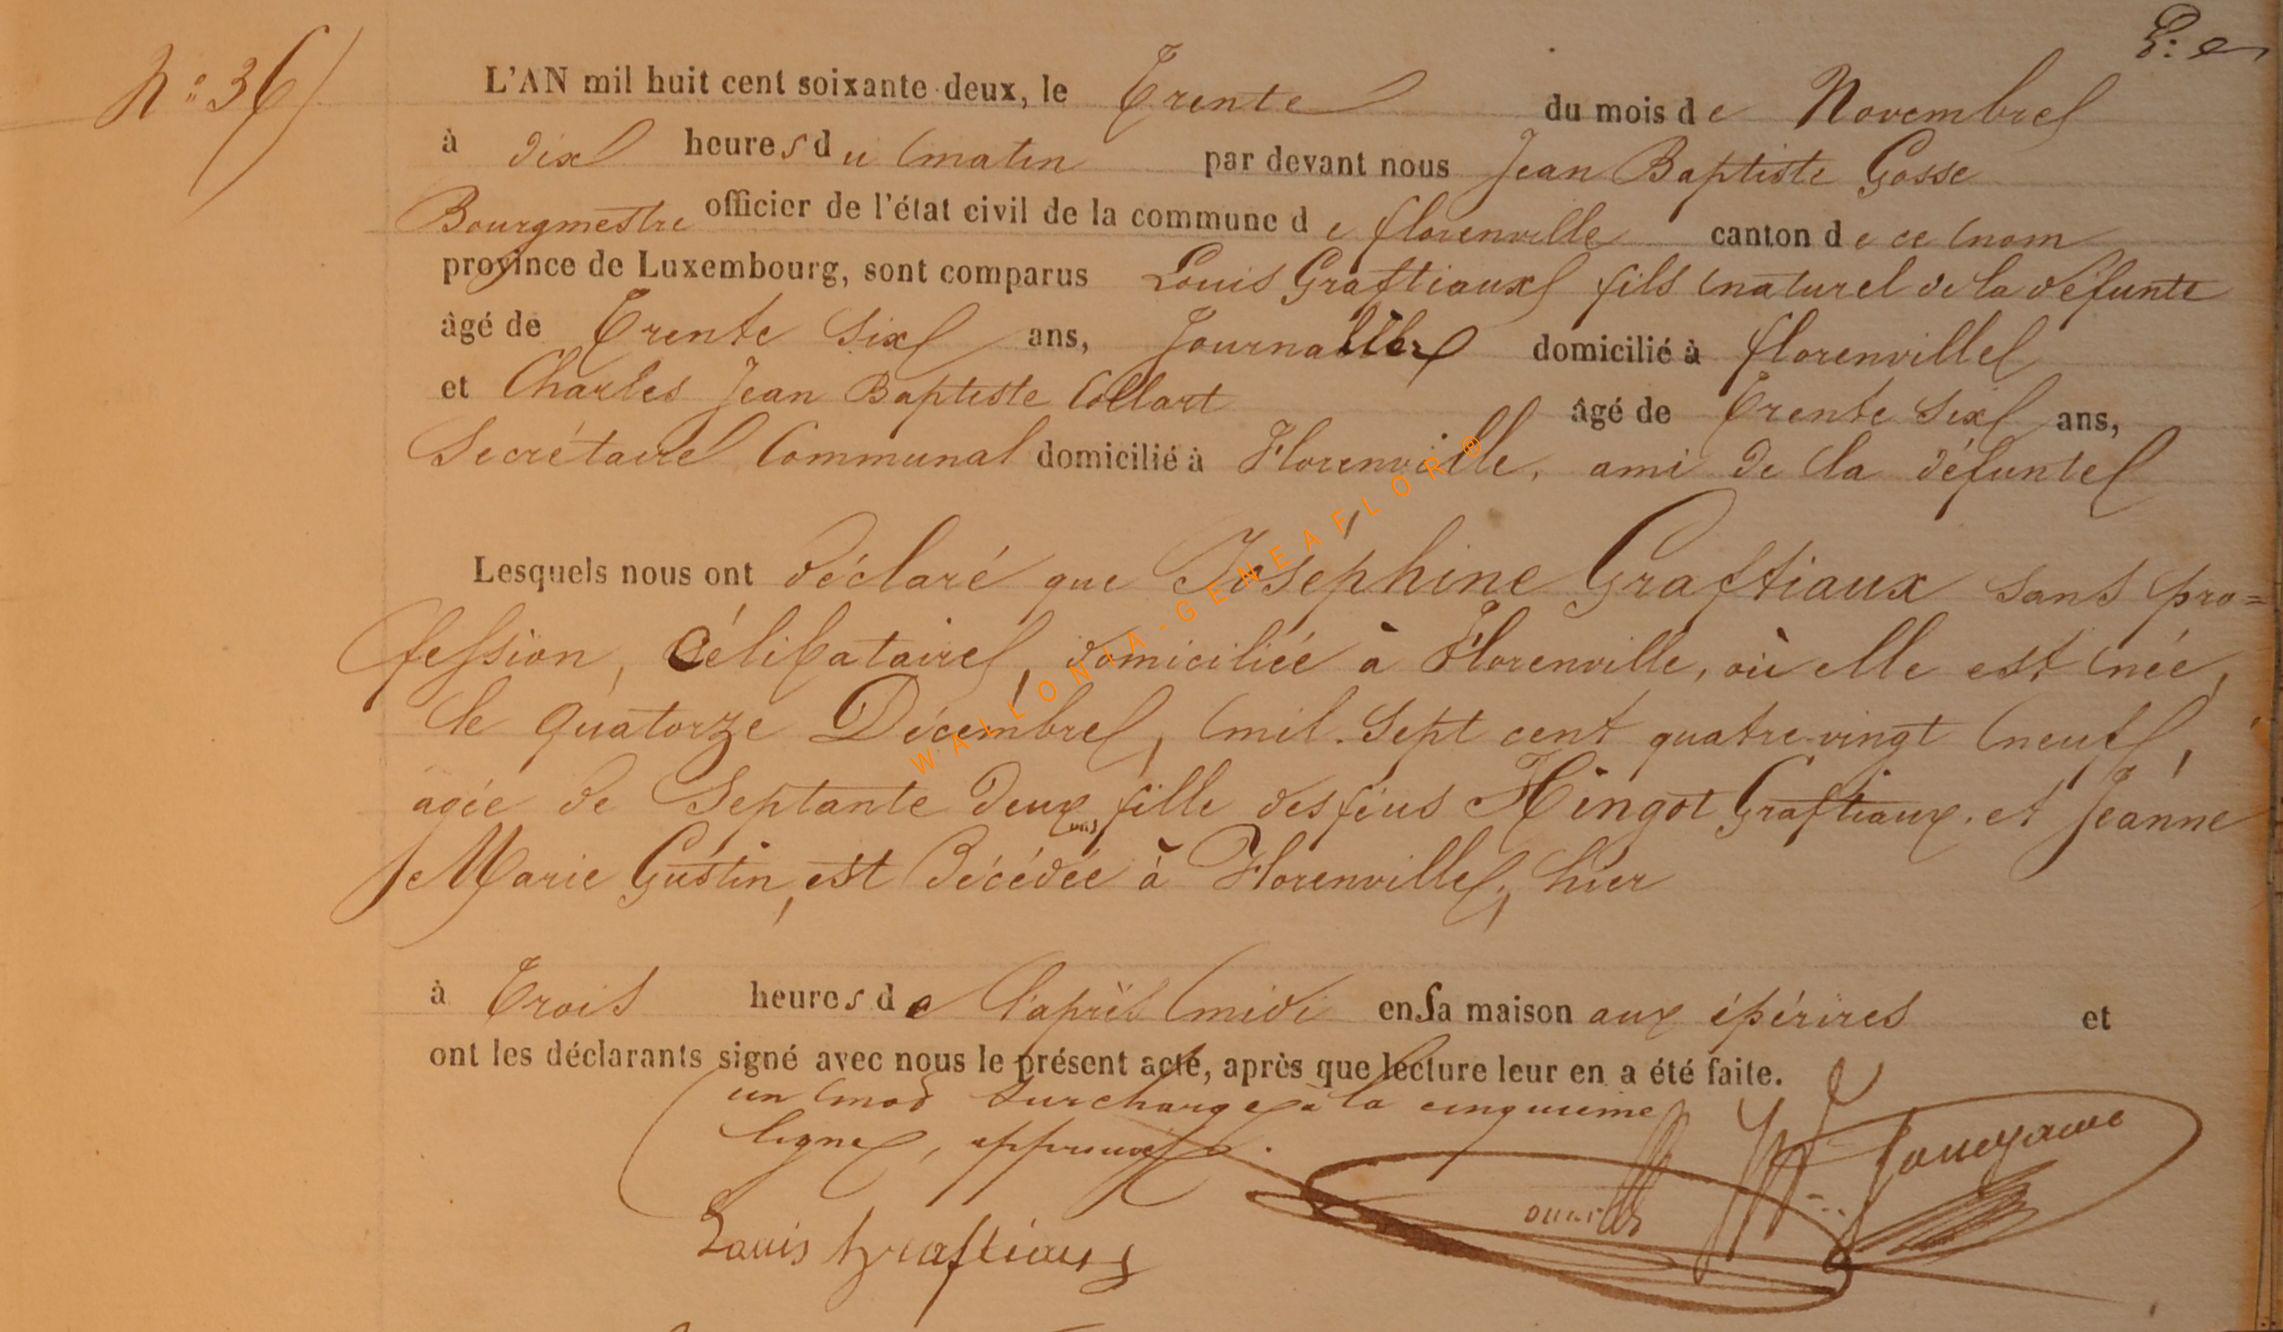 N° 36
L'AN mil huit cent soixante deux, le Trente du mois de Novembre
à dix heures du matin par devant nous Jean Baptiste Gosse
Bourgmestre officier de l'état civil de la commune de florenville canton de ce nom
province de Luxembourg, sont comparus Louis Graftiaux fils naturel de la défunte
âgé de Trente Six ans, Journalier domicilié à florenville
et Charles Jean Baptiste Collart âgé de Trente Six ans,
Secrétaire Communal domicilié à Florenville, ami de la défunte
Lesquels nous ont déclaré que Joséphine Graftiaux sans pro=
fession, Célibataire, domiciliée à Florenville, où elle est née,
le quatorze Décembre, mil sept cent quatre-vingt neuf,
agée de Septante deux ans, fille des feus Hingot Graftiaux et Jeanne
Marie Gustin, est décédée à Florenville, hier
à Trois heures de l'après midi en sa maison aux épérires et
ont les déclarants signé avec nous le présent acte, après que lecture leur en a été faite.
un mot surchargé à la cinquième
ligne, approuvé.
Louis Graftiaux
WALLONIA-GENEAFLOR®